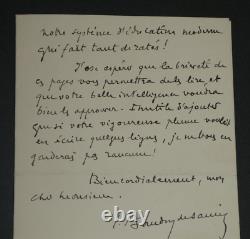 notre système d'éducation moderne
qui fait tant de ratés !
J'ose espérer que la brièveté de
ces pages vous permettra de les lire, et
que votre belle intelligence voudra
bien les approuver. Inutile d'ajouter
que si votre vigoureuse plume voulait
en écrire quelques lignes, je ne vous en
garderais pas rancune !
Bien cordialement, mon
cher Monsieur.
Baudry de Saunier